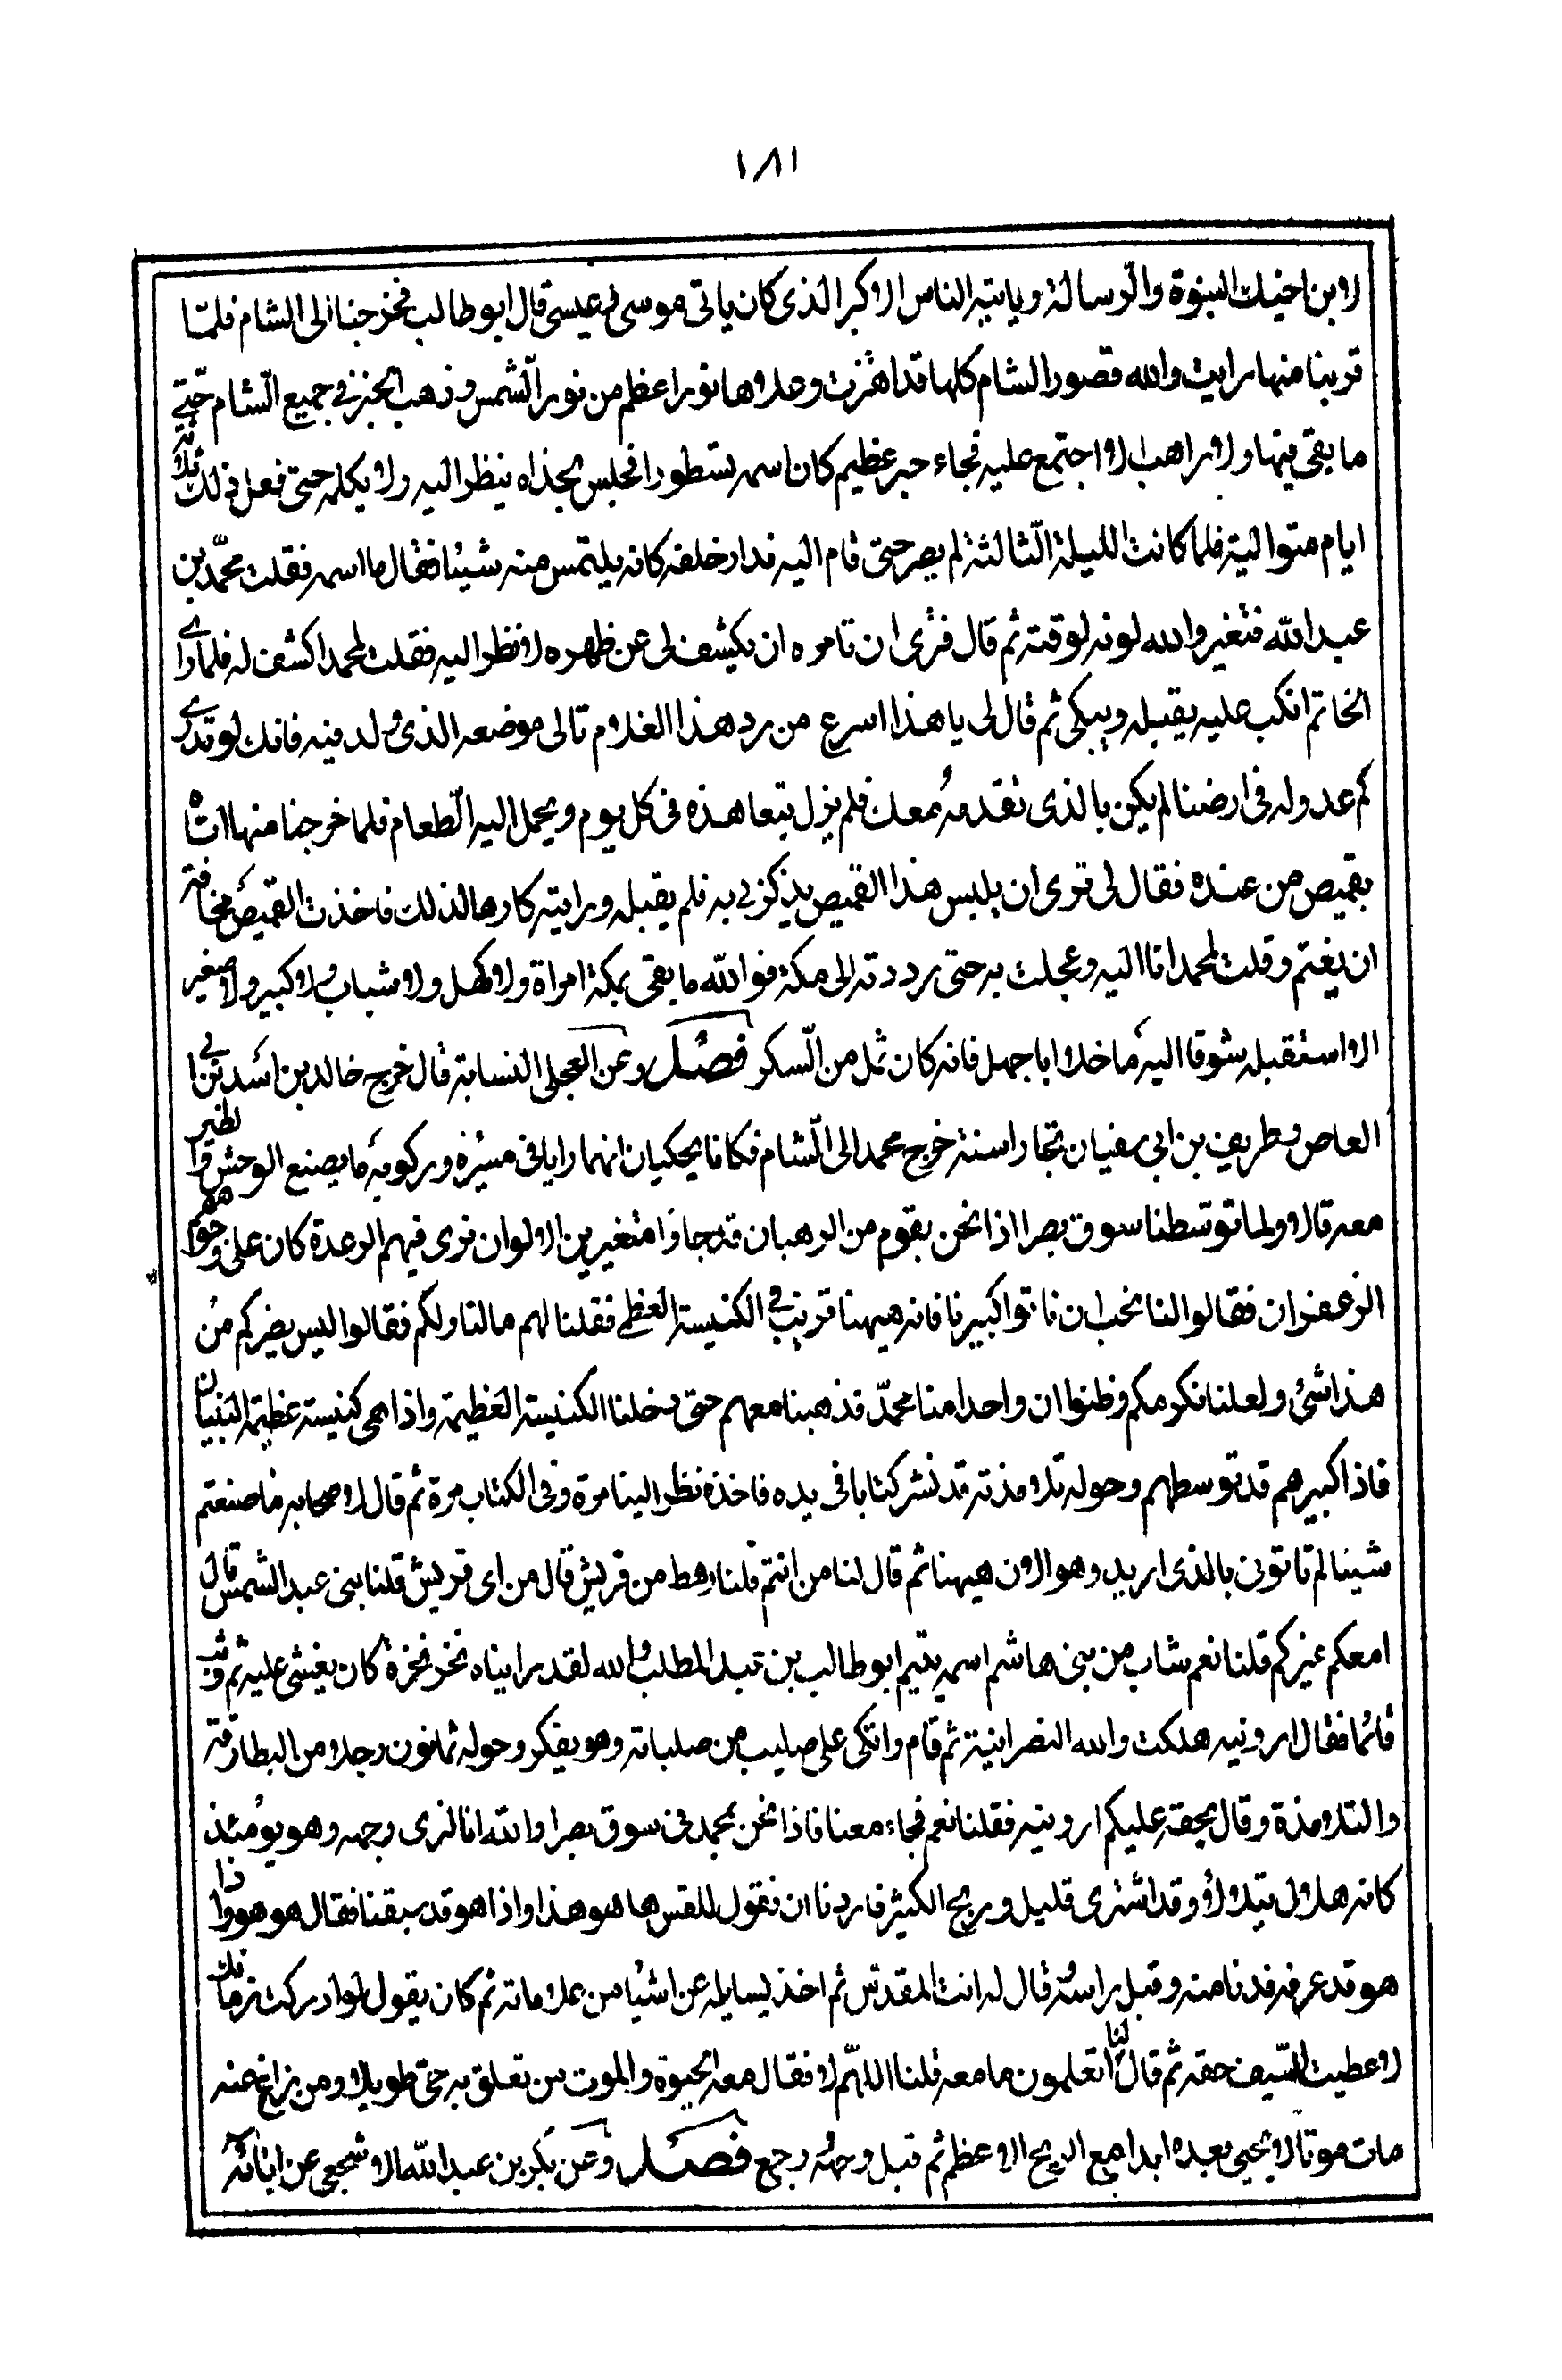 ١٨١
لابن اخيك النبوة والرسالة وياتيه الناس الاكبر الذى كان ياتى موسى وعيسى قال ابو طالب فخرجنا الى الشام فلما
قربنا منها رايت والله قصور الشام كلها قد اهتزت وعلاها نور اعظم من نور الشمس وذهب الخبر فى جميع الشام حتى
ما بقى فيها ولا راهب الا اجتمع عليه فجاء حبر عظيم كان اسمه نسطورا فجلس بحذاه ينظر اليه ولا يكلمه حتى فعل ذلك ثلاثة
ايام متوالية فلما كانت الليلة الثالثة لم يصبر حتى قام اليه فدار خلفه كانه يلتمس منه شيئا فقال ما اسمه فقلت محمد بن
عبد الله فتغير والله لونه لوقته ثم قال فترى ان تامره ان يكشف لى عن ظهره لانظر اليه فقلت لمحمد اكشف له فلما راى
الخاتم انكب عليه يقبله ويبكى ثم قال لى يا هذا اسرع من رد هذا الغلام تا الى موضعه الذى ولد فيه فانك لو تدرى
كم عدو له فى ارضنا لم يكن بالذى تقدمه معك فلم يزل يتعاهده فى كل يوم ويحمل اليه الطعام فلما خرجنا منها اتاه
بقميص من عنده فقال لى ترى ان يلبس هذا القميص يذكرنى به فلم يقبله ورايته كارها لذلك فاخذت القميص مخافة
ان يغتم وقلت لمحمد انا اليه وعجلت به حتى رددته الى مكة فوالله ما بقى بمكة امراة ولا كهل ولا شباب ولا كبير ولا صغير
الا استقبله شوقا اليه ما خلا ابا جهل فانه كان ثمل من السكر فصل وعن العجلى النسابة قال خرج خالد بن اسد بن ابى
العاص وطريف بن ابى سفيان تجارا سنة خرج محمد الى الشام فكانا يحكيان انهما رايا فى مسيره وركوبه ما يصنع الوحش والطير
معه قالا ولما توسطنا سوق بصرا اذا نحن بقوم من الرهبان قد جاؤا متغيرين الالوان نرى فيهم الرعدة كان على وجوههم
الزعفران فقالوا لنا نحب ان تاتوا كبيرنا فانه هيهنا قريب فى الكنيسة العظمى فقلنا لهم ما لنا ولكم فقالوا ليس يضركم من
هذا شئ ولعلنا نكرمكم وظنوا ان واحدا منا محمد فذهبنا معهم حتى دخلنا الكنيسة العظيمة واذا هى كنيسة عظيمة البنيان
فاذا كبيرهم قد توسطهم وحوله تلامذته قد نشر كتابا فى يده فاخذه نظر الينا مرة وفى الكتاب مرة ثم قال لاصحابه ما صنعتم
شيئا لم تاتونى بالذى اريد وهو الان هيهنا ثم قال لنا من انتم قلنا رهط من قريش قال من اى قريش قلنا بنى عبد الشمس قال
امعكم غيركم قلنا نعم شاب من بنى هاشم اسمه يتيم ابو طالب بن عبد المطلب والله لقد رايناه نخر نخرة كان يغشى عليه ثم وثب
قائما فقال ارونيه هلكت والله النصرانية ثم قام واتكى على صليب من صلبانه وهو يفكر وحوله ثمانون رجلا من البطارقة
والتلامذة وقال بحقه عليكم ارونيه فقلنا نعم فجاء معنا فاذا نحن بمحمد فى سوق بصرا والله انا لنرى وجهه وهو يومئذ
كانه هلال يتلالؤ وقد اشترى قليل وربح الكثير فاردنا ان نقول للقس ها هو هذا واذا هو قد سبقنا فقال هو هو واذا
هو قد عرفه فدنا منه وقبل راسه قال له انت المقدس ثم اخذ يسايله عن اشيا من علاماته ثم كان يقول لو ادركت زمانك
لاعطيت للسيف حقه ثم قال لنا اتعلمون ما معه قلنا اللهم لا فقال معه الحيوة والموت من تعلق به حى طويلا ومن زاغ عنه
مات موتا لا يحيى بعده ابدا معه الربح الاعظم ثم قبل وجهه ورجع فصل وعن بكر بن عبد الله الاشجعى عن ابائه